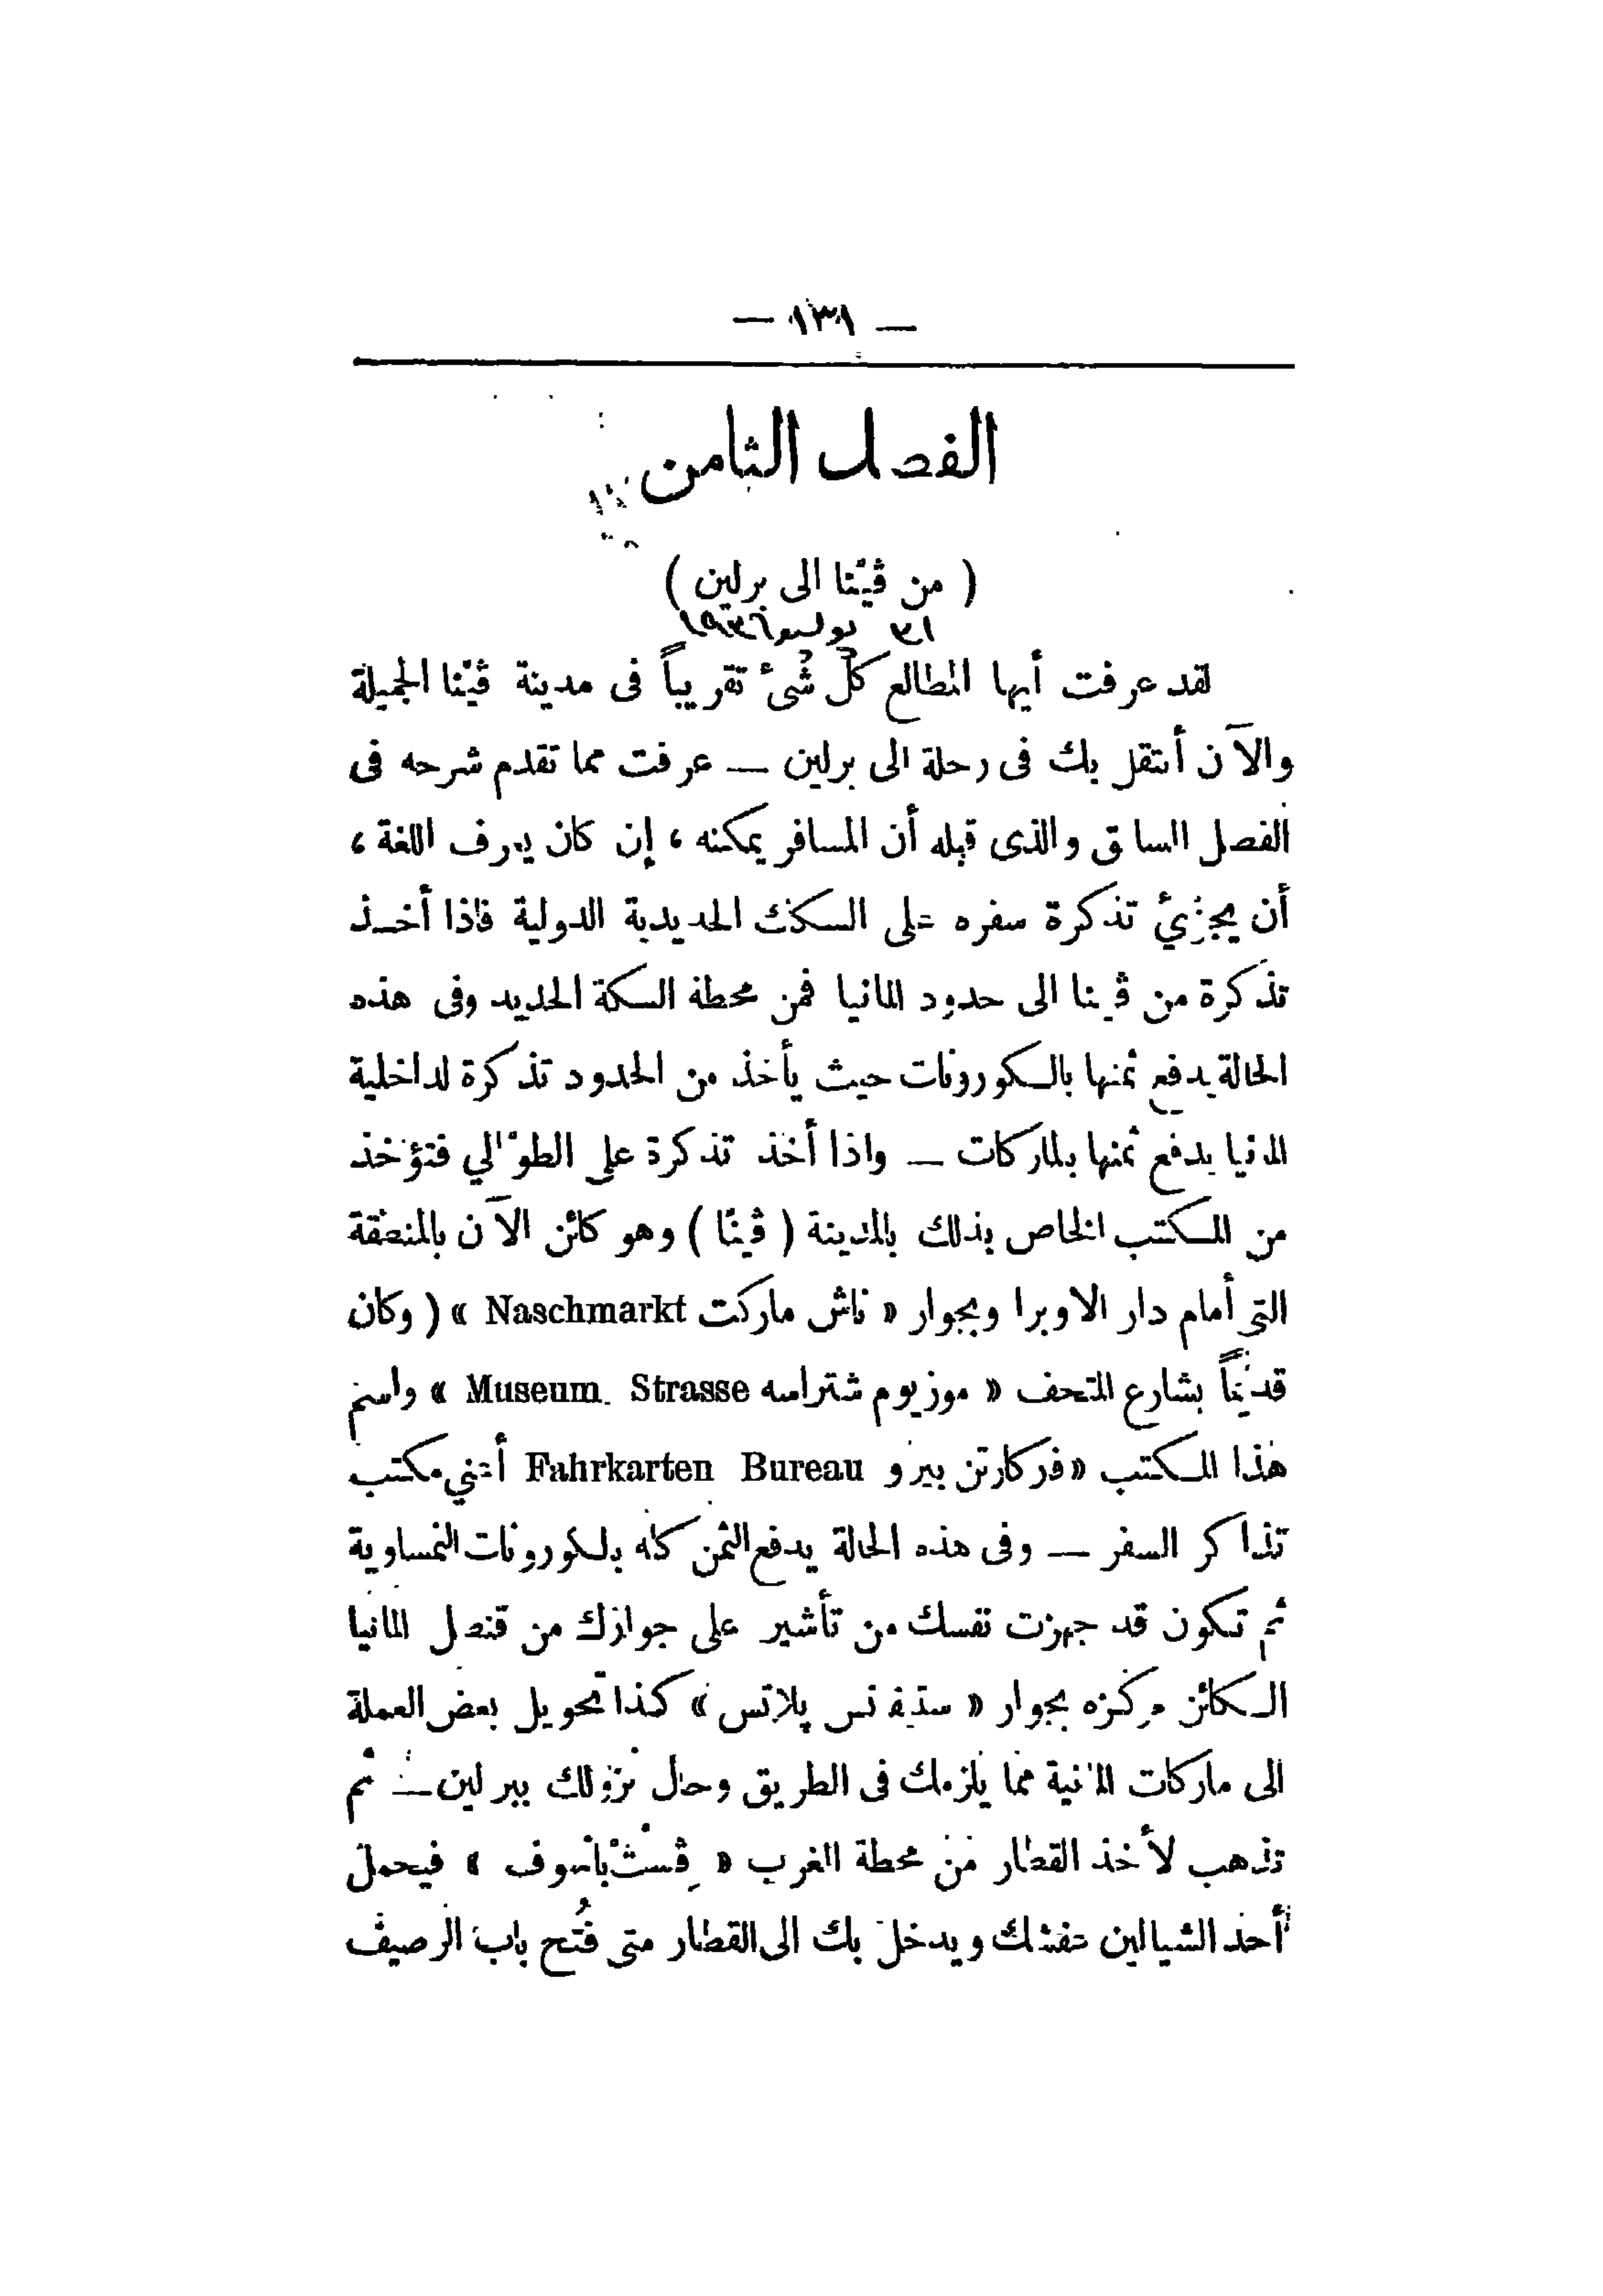 — ١٣١ —
الفصل الثامن
( من ڤيّنا الى برلين )
٣١ يوليو ١٩٣٦
لقد عرفت أيها المطالع كلّ شئ تقريباً فى مدينة ڤيّنا الجميلة
والآن أنتقل بك فى رحلة الى برلين — عرفت مما تقدم شرحه فى
الفصل السابق والذى قبله أن المسافر يمكنه ، إن كان يعرف اللغة ،
أن يجزئ تذكرة سفره على السكك الحديدية الدولية فاذا أخذ
تذكرة من ڤينا الى حدود المانيا فمن محطة السكة الحديد وفى هذه
الحالة يدفع ثمنها بالكورونات حيث يأخذ من الحدود تذكرة لداخلية
المانيا يدفع ثمنها بالماركات — واذا أخذ تذكرة على الطوّالي فتؤخذ
من المكتب الخاص بذلك بالمدينة ( ڤينّا ) وهو كائن الآن بالمنطقة
التي أمام دار الاوبرا وبجوار « ناش ماركت Naschmarkt » ( وكان
قديماً بشارع المتحف « موزيوم شتراسه Museum. Strasse » واسم
هذا المكتب « فركارتن بيرو Fahrkarten Bureau أعني مكتب
تذاكر السفر — وفى هذه الحالة يدفع الثمن كله بالكورونات النمساوية
ثم تكون قد جهزت نفسك من تأشير على جوازك من قنصل المانيا
الكائن مركزه بجوار « ستيفنس پلاتس » كذا تحويل بعض العملة
الى ماركات المانية مما يلزمك فى الطريق وحال نزولك ببرلين — ثم
تذهب لأخذ القطار من محطة الغرب « ڤستْ بانهوف » فيحمل
أحد الشيالين عفشك ويدخل بك الى القطار متى فُتح باب الرصيف